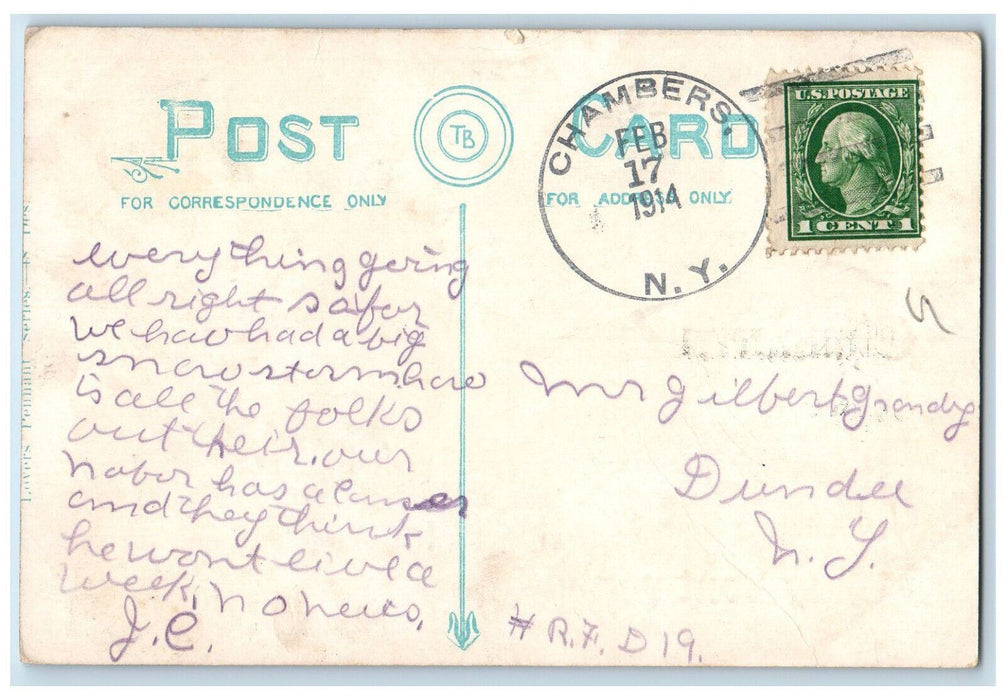 POST CARD
TB
FOR CORRESPONDENCE ONLY
FOR ADDRESS ONLY.
CHAMBERS.
FEB
17
1914
N. Y.
U.S. POSTAGE
1 CENT 1
everything going
all right so far
we hav had a big
snow storm how
is all the folks
out their, our
nabor has a cancer
and they think
he wont live a
week, no news,
J.C.
Mr Gilbert Grandy
Dundee
N.Y.
# R.F.D 19.
Lovers Pennant Series.—15 Des